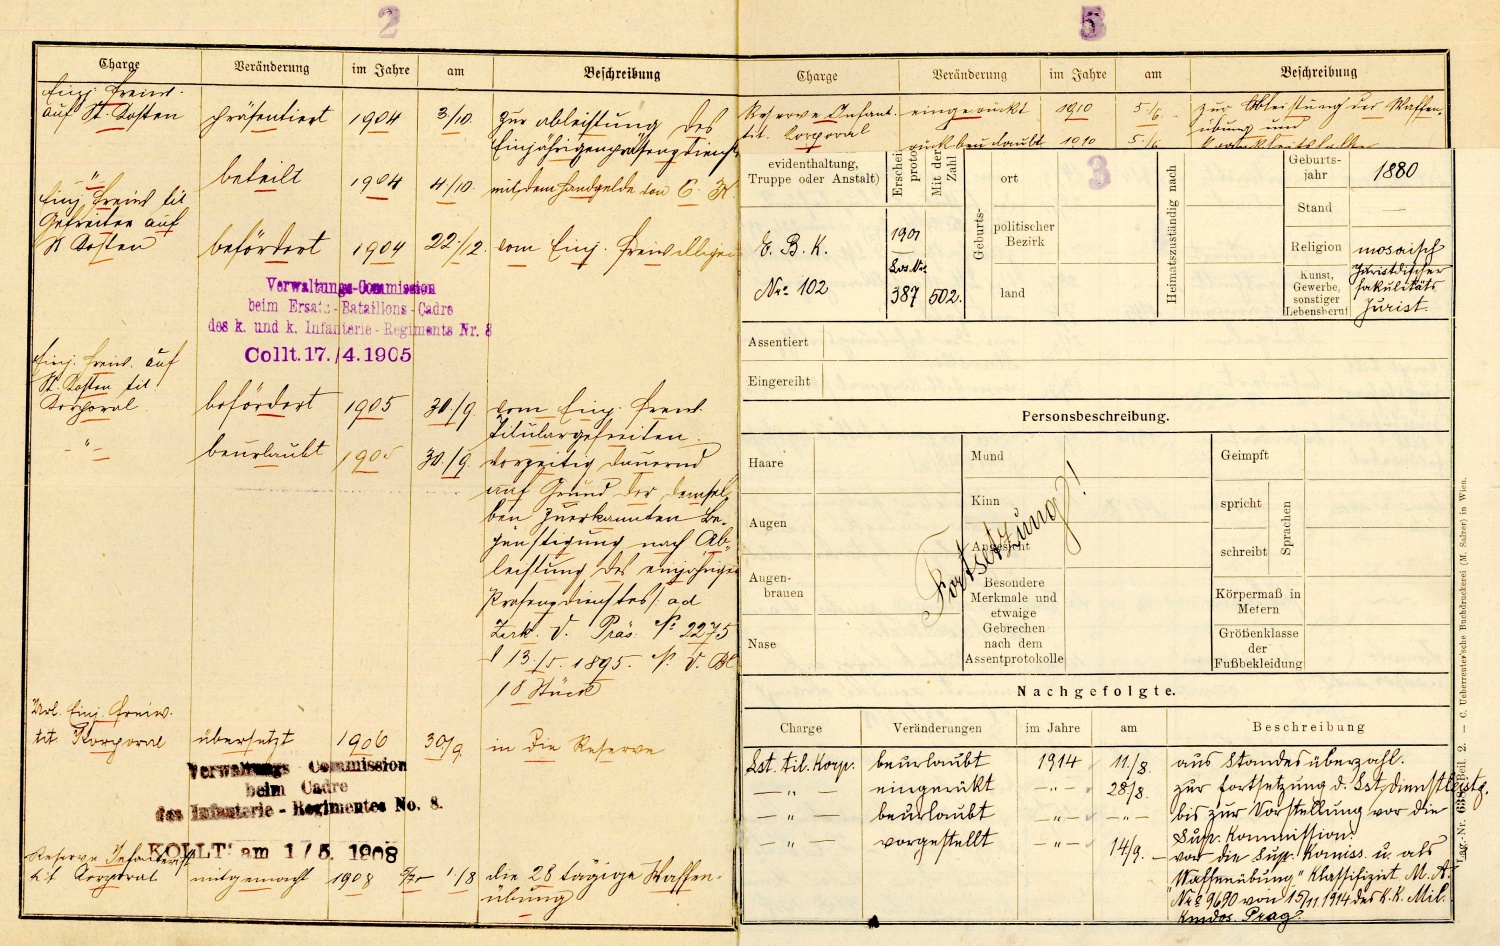 2
Charge Veränderung im Jahre am Beschreibung
Einj. Freiw.
auf St. Kosten präsentiert 1904 3/10. zur Ableistung des
Einjährigenpräsenzdienst
" beteilt 1904 4/10. mit dem Handgelde von 6. K.
Einj. Freiw. tit
Gefreiter auf
St Kosten befördert 1904 22./12. vom Einj. Freiwilligen
Verwaltungs-Commission
beim Ersatz-Bataillons-Cadre
des k. und k. Infanterie-Regiments Nr. 8
Collt. 17./4.1905
Einj. Freiw. auf
St. Kosten tit
Korporal befördert 1905 30./9. vom Einj. Freiw.
Titulargefreiten.
-"- beurlaubt 1905 30./9. vorzeitig dauernd
auf Grund der demsel-
ben zuerkannten Be-
günstigung nach Ab-
leistung des einjährigen
Präsenzdienstes/: ad
Zirk. V. Präs. No 2275
13./5. 1895. N. V. Bl
18 Stück
Einj. Freiw.
tit. Korporal übersetzt 1906 30/9. in die Reserve
Verwaltungs Commission
beim Cadre
des Infanterie-Regimentes No. 8.
KOLLT: am 1/5. 1908
Reserve Infanterist
tit Korporal mitgemacht 1908 1/8 die 28 tägige Waffen-
übung
5
Charge Veränderung im Jahre am Beschreibung
Reserve Infant. eingerückt 1910 5/6. zur Ableistung der Waffen-
tit. Korporal übung und
rückbeurlaubt 1910 5/6 Krankheitshalber
3
evidenthaltung,
Truppe oder Anstalt)
Mit der
Zahl
E. B. K.
Nr. 102
1901
Los. Nr.
387 502.
Geburts-
ort
politischer
Bezirk
land
Heimatszuständig nach
Geburts-
jahr 1880
Stand —
Religion mosaisch
Kunst,
Gewerbe,
sonstiger
Lebensberuf
Juridischer
fakultäts
Jurist.
Assentiert
Eingereiht
Personsbeschreibung.
Haare Mund Geimpft
Kinn spricht
Augen Angesicht schreibt
Sprachen
Augen-
brauen
Besondere
Merkmale und
etwaige
Gebrechen
nach dem
Assentprotokolle
Körpermaß in
Metern
Nase
Größenklasse
der
Fußbekleidung
Fortsetzung!
Nachgefolgte.
Charge Veränderungen im Jahre am Beschreibung
Lst. tit. Korp. beurlaubt 1914 11/8. aus Standesüberzahl.
— " — eingerückt -"- 28/8. zur Fortsetzung d. Lst. dienstleistg.
— " — beurlaubt -"- — " — bis zur Vorstellung vor die
Sup. Kommission.
— " — vorgestellt -"- 14/9. — vor die Sup. Komiss. u. als
"Waffenübung" klassifiziert M. A.
Nr 89690 von 15/11 1914 des K. K. Mil.
Kmdos. Prag.
Lag.-Nr. 638. Beil. 2. — C. Ueberreuter'sche Buchdruckerei (M. Salzer) in Wien.